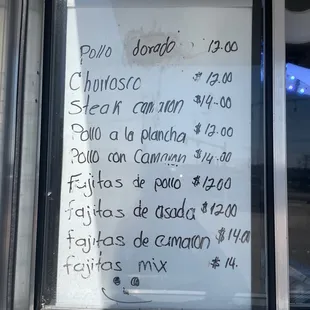 Pollo dorado 12.00
Churrasco $12.00
Steak camaron $14.00
Pollo a la plancha $12.00
Pollo con Camaron $14.00
Fajitas de pollo $12.00
fajitas de asada $12.00
fajitas de camaron $14.00
fajitas mix $14.